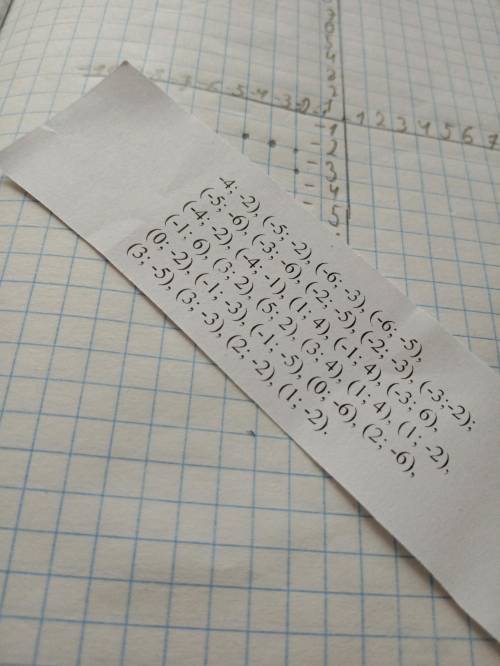 4; -2), (-5; -2), (-6; -3), (-6; -5),
(-5; -6), (-3; -6) (-2; -5), (-2; -3), (-3;-2);
(-4; -2), (-4; -1), (1; 4), (-1; 4), (-3; 6),
(-1; 6), (3; 2), (5; 2) (3; 4), (1; 4), (1; -2),
(0; -2), (-1; -3), (-1; -5), (0; -6), (2; -6),
(3; -5), (3; -3), (2; -2), (1; -2).
1 2 3 4 5 6 7
-1
-2
-3
-4
-5